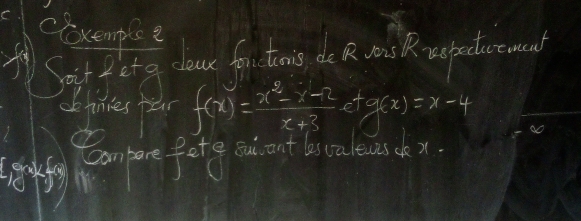 Exemple 2
f(x)) Soit f et g deux fonctions de R vers R respectivement
définies par f(x) = x² - x - 12 / x + 3 et g(x) = x - 4
- ∞
Compare f et g suivant les valeurs de x.
[, g(x) < f(x))